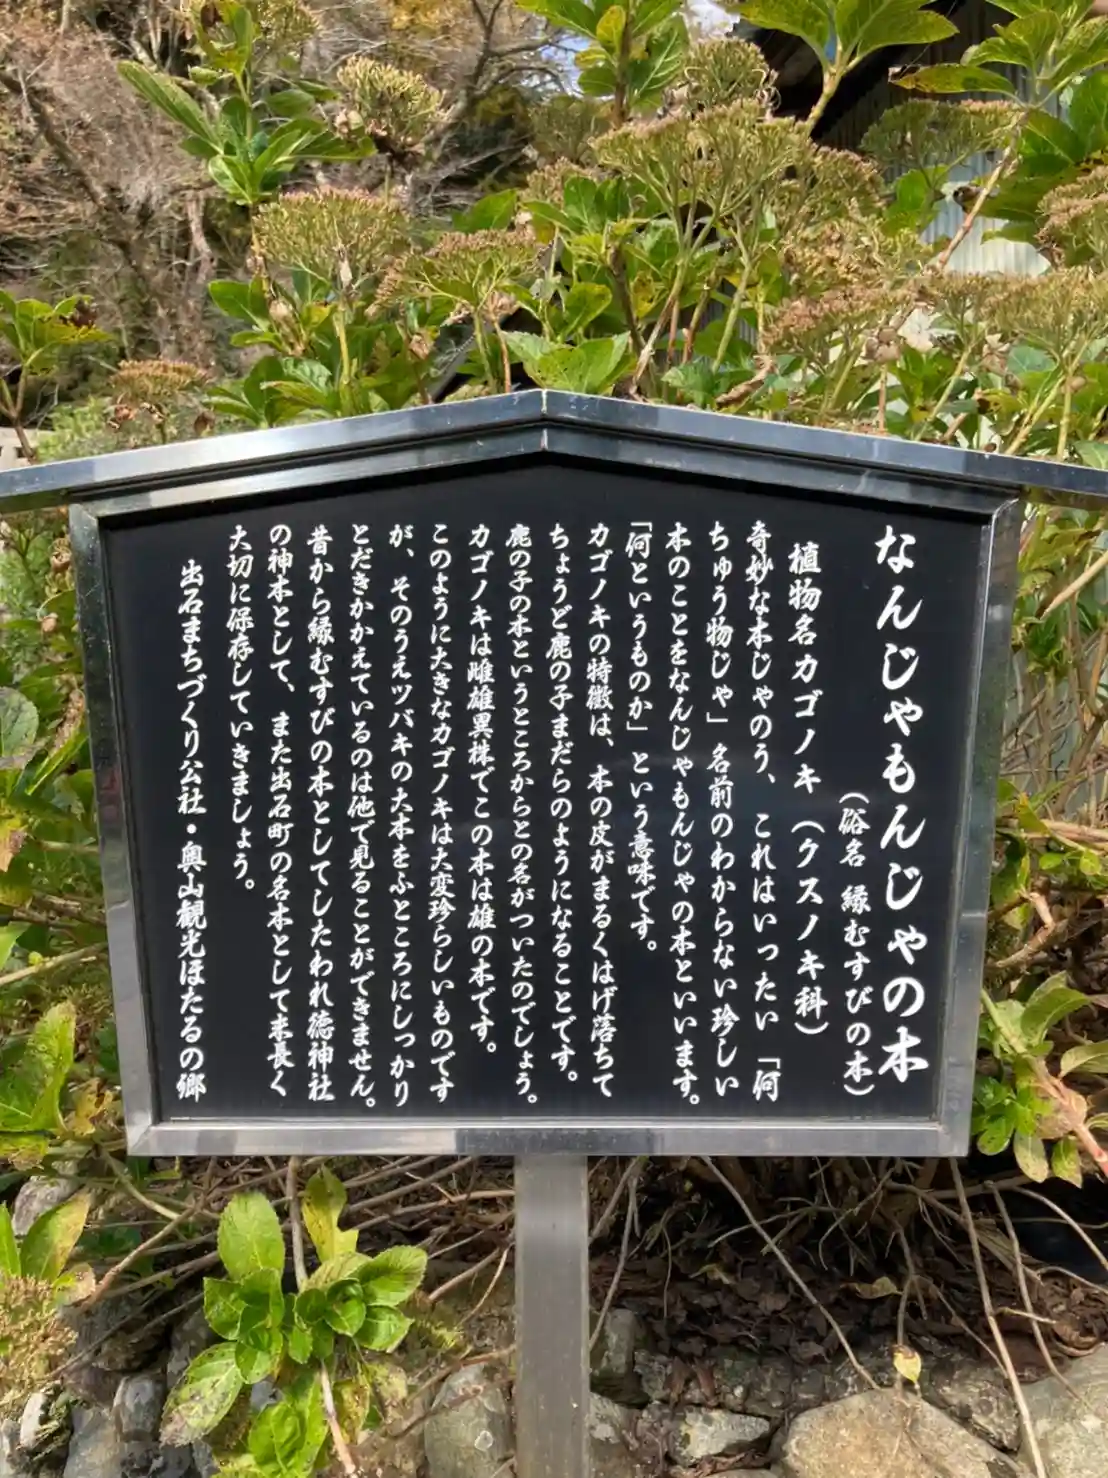 なんじゃもんじゃの木
（俗名 縁むすびの木）
植物名カゴノキ（クスノキ科）
奇妙な木じゃのう、これはいったい「何
ちゅう物じゃ」名前のわからない珍しい
木のことをなんじゃもんじゃの木といいます。
「何というものか」という意味です。
カゴノキの特徴は、木の皮がまるくはげ落ちて
ちょうど鹿の子まだらのようになることです。
鹿の子の木というところからとの名がついたのでしょう。
カゴノキは雌雄異株でこの木は雄の木です。
このように大きなカゴノキは大変珍らしいものです
が、そのうえツバキの大木をふところにしっかり
とだきかかえているのは他で見ることができません。
昔から縁むすびの木としてしたわれ徳神社
の神木として、また出石町の名木として末長く
大切に保存していきましょう。
出石まちづくり公社・奥山観光ほたるの郷